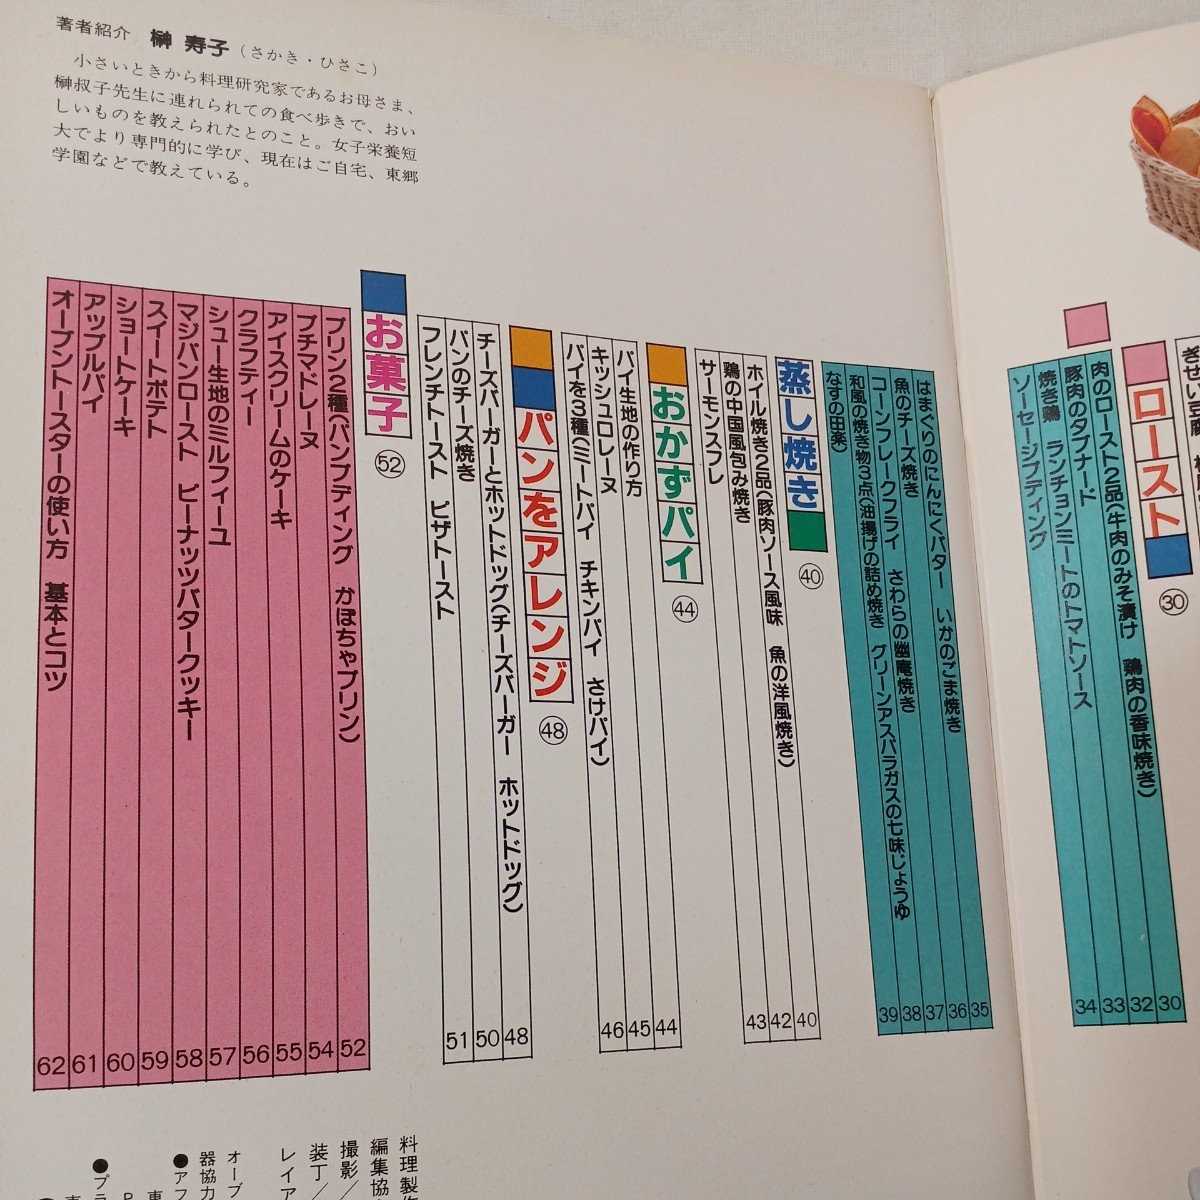 著者紹介 榊 寿子(さかき・ひさこ)
小さいときから料理研究家であるお母さま、
榊叔子先生に連れられての食べ歩きで、おい
しいものを教えられたとのこと。女子栄養短
大でより専門的に学び、現在はご自宅、東郷
学園などで教えている。
ぎせい豆腐
ロースト 30
肉のロースト2品(牛肉のみそ漬け 鶏肉の香味焼き) 30
豚肉のタプナード 32
焼き鶏 ランチョンミートのトマトソース 33
ソーセージプディング 34
はまぐりのにんにくバター いかのごま焼き 35
魚のチーズ焼き 36
コーンフレークフライ さわらの幽庵焼き 37
和風の焼き物3点(油揚げの詰め焼き グリーンアスパラガスの七味じょうゆ 38
なすの田楽) 39
蒸し焼き 40
ホイル焼き2品(豚肉ソース風味 魚の洋風焼き) 40
鶏の中国風包み焼き 42
サーモンスフレ 43
おかずパイ 44
パイ生地の作り方 44
キッシュロレーヌ 45
パイを3種(ミートパイ チキンパイ さけパイ) 46
パンをアレンジ 48
チーズバーガーとホットドッグ(チーズバーガー ホットドッグ) 48
パンのチーズ焼き 50
フレンチトースト ピザトースト 51
お菓子 52
プリン2種(パンプディング かぼちゃプリン) 52
プチマドレーヌ 54
アイスクリームのケーキ 55
クラフティー 56
シュー生地のミルフィーユ 57
マジパンロースト ピーナッツバタークッキー 58
スイートポテト 59
ショートケーキ 60
アップルパイ 61
オーブントースターの使い方 基本とコツ 62
料理製作
編集協
撮影/
装丁/
レイア
オーブ
器協力
●アフ
東
P
●プラ